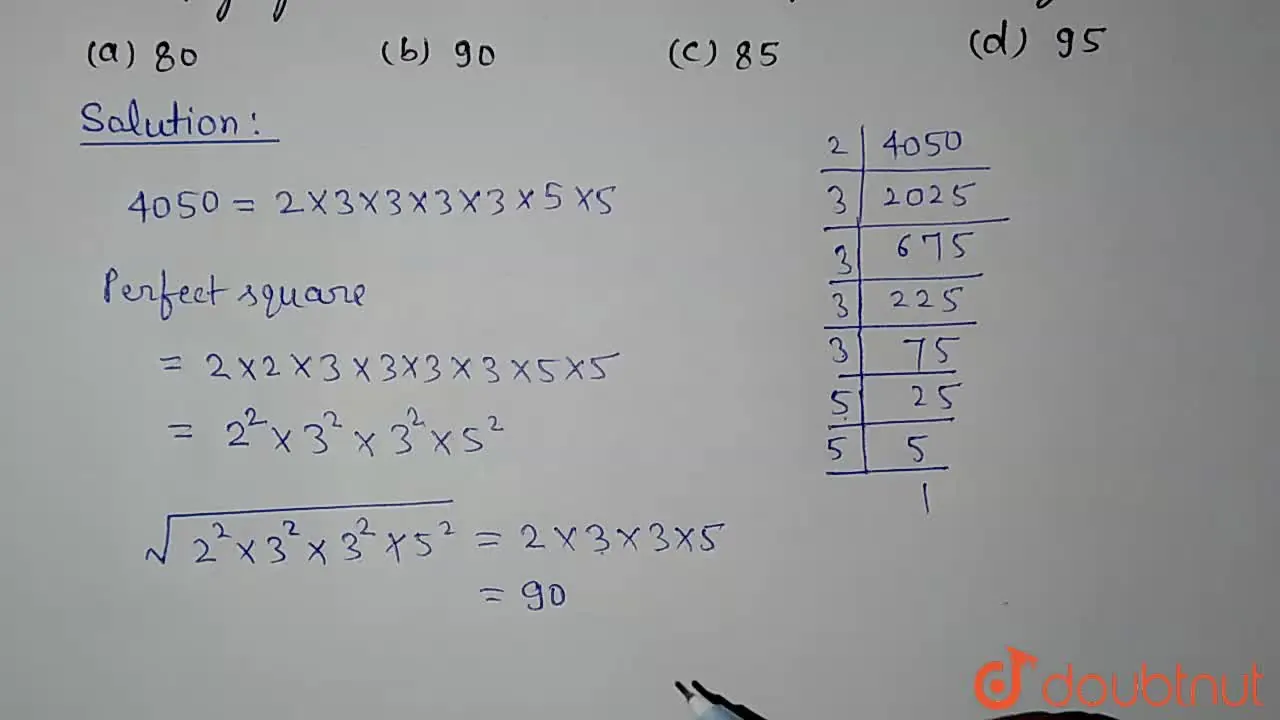 (a) 80 (b) 90 (c) 85 (d) 95
Solution:
4050 = 2×3×3×3×3×5×5
Perfect square
= 2×2×3×3×3×3×5×5
= 2²×3²×3²×5²
√2²×3²×3²×5² = 2×3×3×5
= 90
2 | 4050
3 | 2025
3 | 675
3 | 225
3 | 75
5 | 25
5 | 5
1
doubtnut